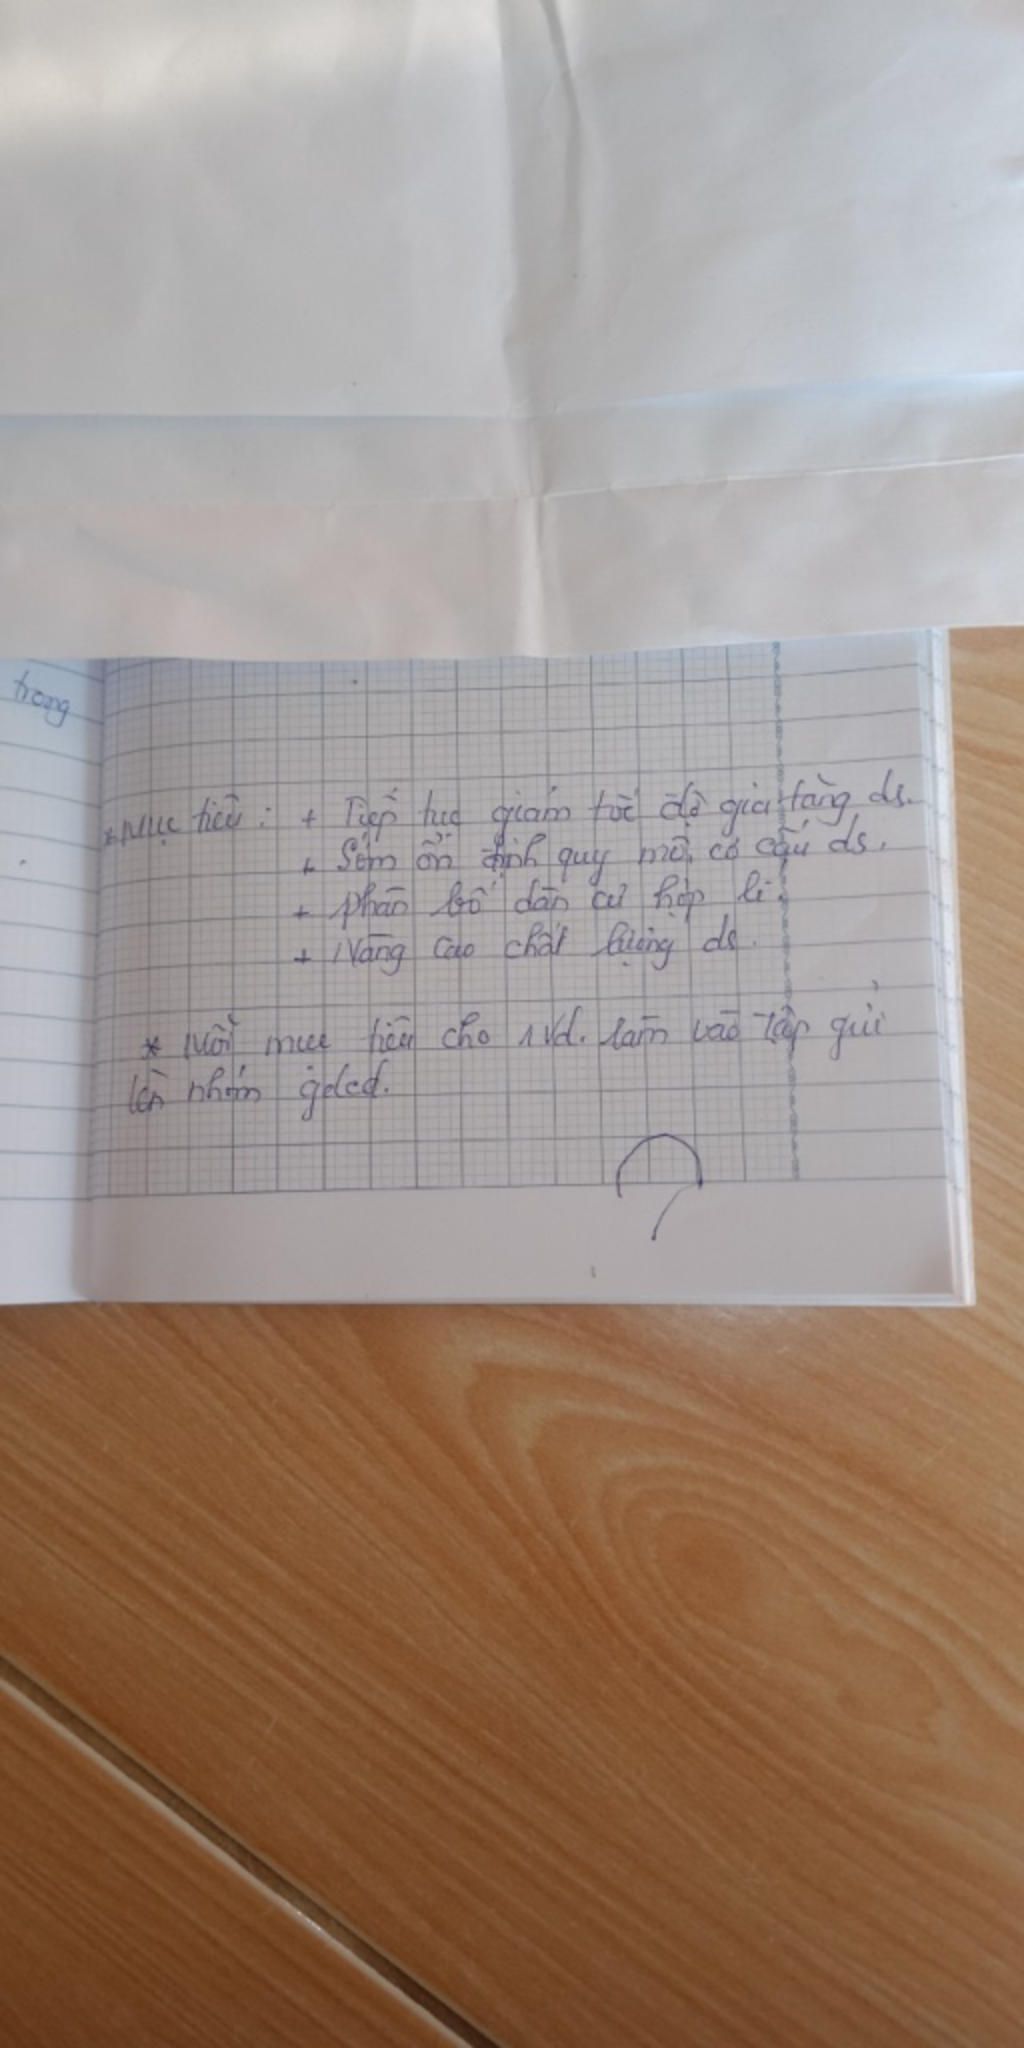 trong
* Mục tiêu: + Tiếp tục giảm tốc độ gia tăng ds.
+ Sớm ổn định quy mô, cơ cấu ds.
+ phân bố dân cư hợp lí.
+ Nâng cao chất lượng ds.
* Mỗi mục tiêu cho 1 vd. làm vào tập gửi
lên nhóm gdcd.